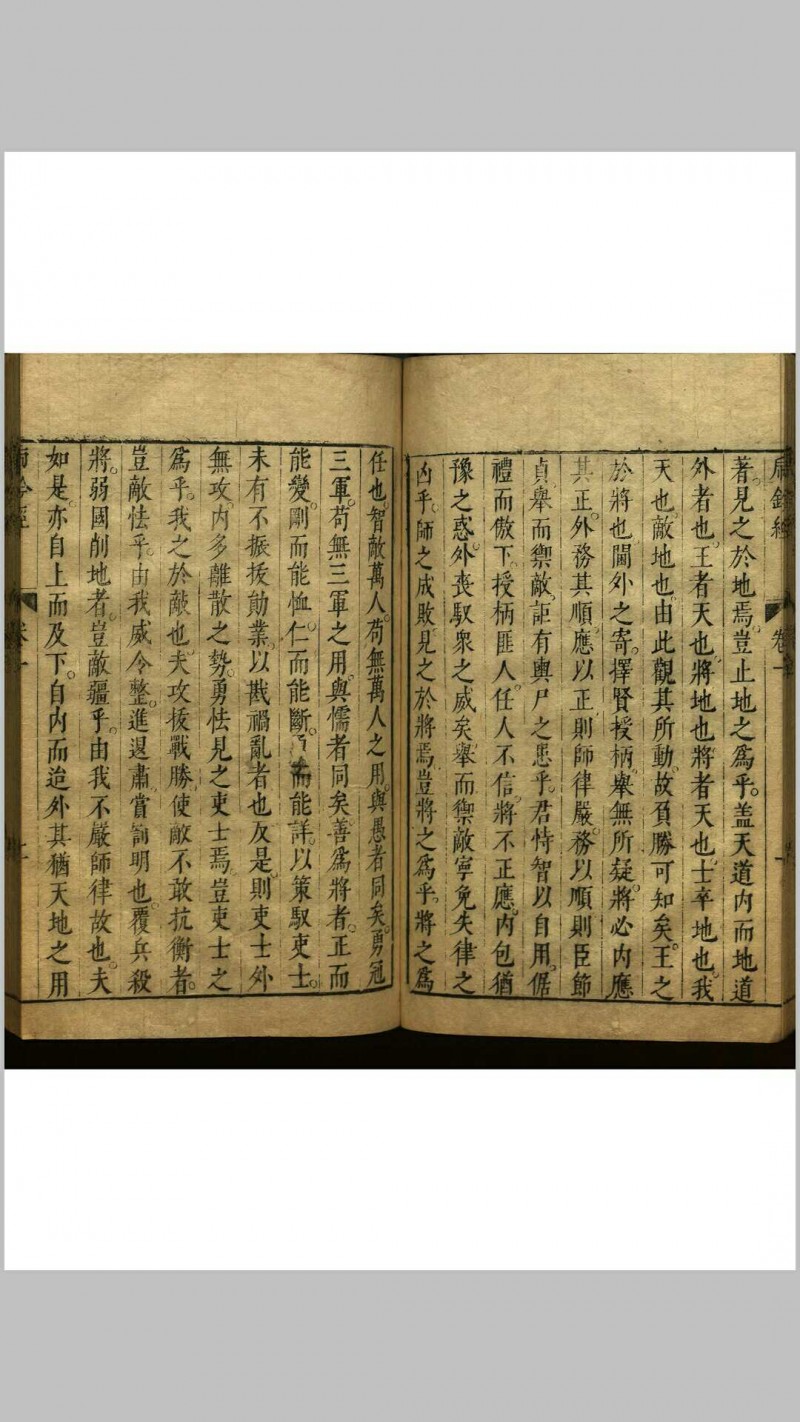 卷一
著見之於地焉。豈止地之爲乎。盖天道内而地道
外者也。王者天也。將地也。將者天也。士卒地也。我
天也。敵地也。由此觀其所動。故負勝可知矣。王之
於將也。閫外之寄。擇賢授柄。舉無所疑。將必内應
其正。外務其順。應以正。則師律嚴。務以順。則臣節
貞。舉而禦敵。詎有輿尸之患乎。君恃智以自用。倨
禮而傲下。授柄匪人。任人不信。將不正應。内包猶
豫之惑。外喪馭衆之威矣。舉而禦敵。寧免失律之
凶乎。師之成敗。見之於將焉。豈將之爲乎。將之爲
任也。智敵萬人。苟無萬人之用。與愚者同矣。勇冠
三軍。苟無三軍之用。與懦者同矣。善爲將者。正而
能變。剛而能恤。仁而能斷。而能詳。以策馭吏士。
未有不振拔勛業。以戡禍亂者也。反是。則吏士外
無攻。内多離散之勢。勇怯見之吏士焉。豈吏士之
爲乎。我之於敵也。夫攻拔戰勝。使敵不敢抗衡者。
豈敵怯乎。由我威令整。進退肅。賞罰明也。覆兵殺
將。弱國削地者。豈敵疆乎。由我不嚴師律故也。夫
如是。亦自上而及下。自内而迨外。其猶天地之用